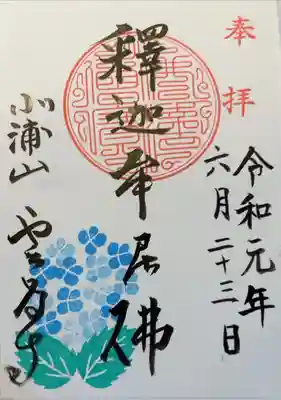 奉拝
令和元年
六月二十三日
釋迦牟尼佛
小浦山